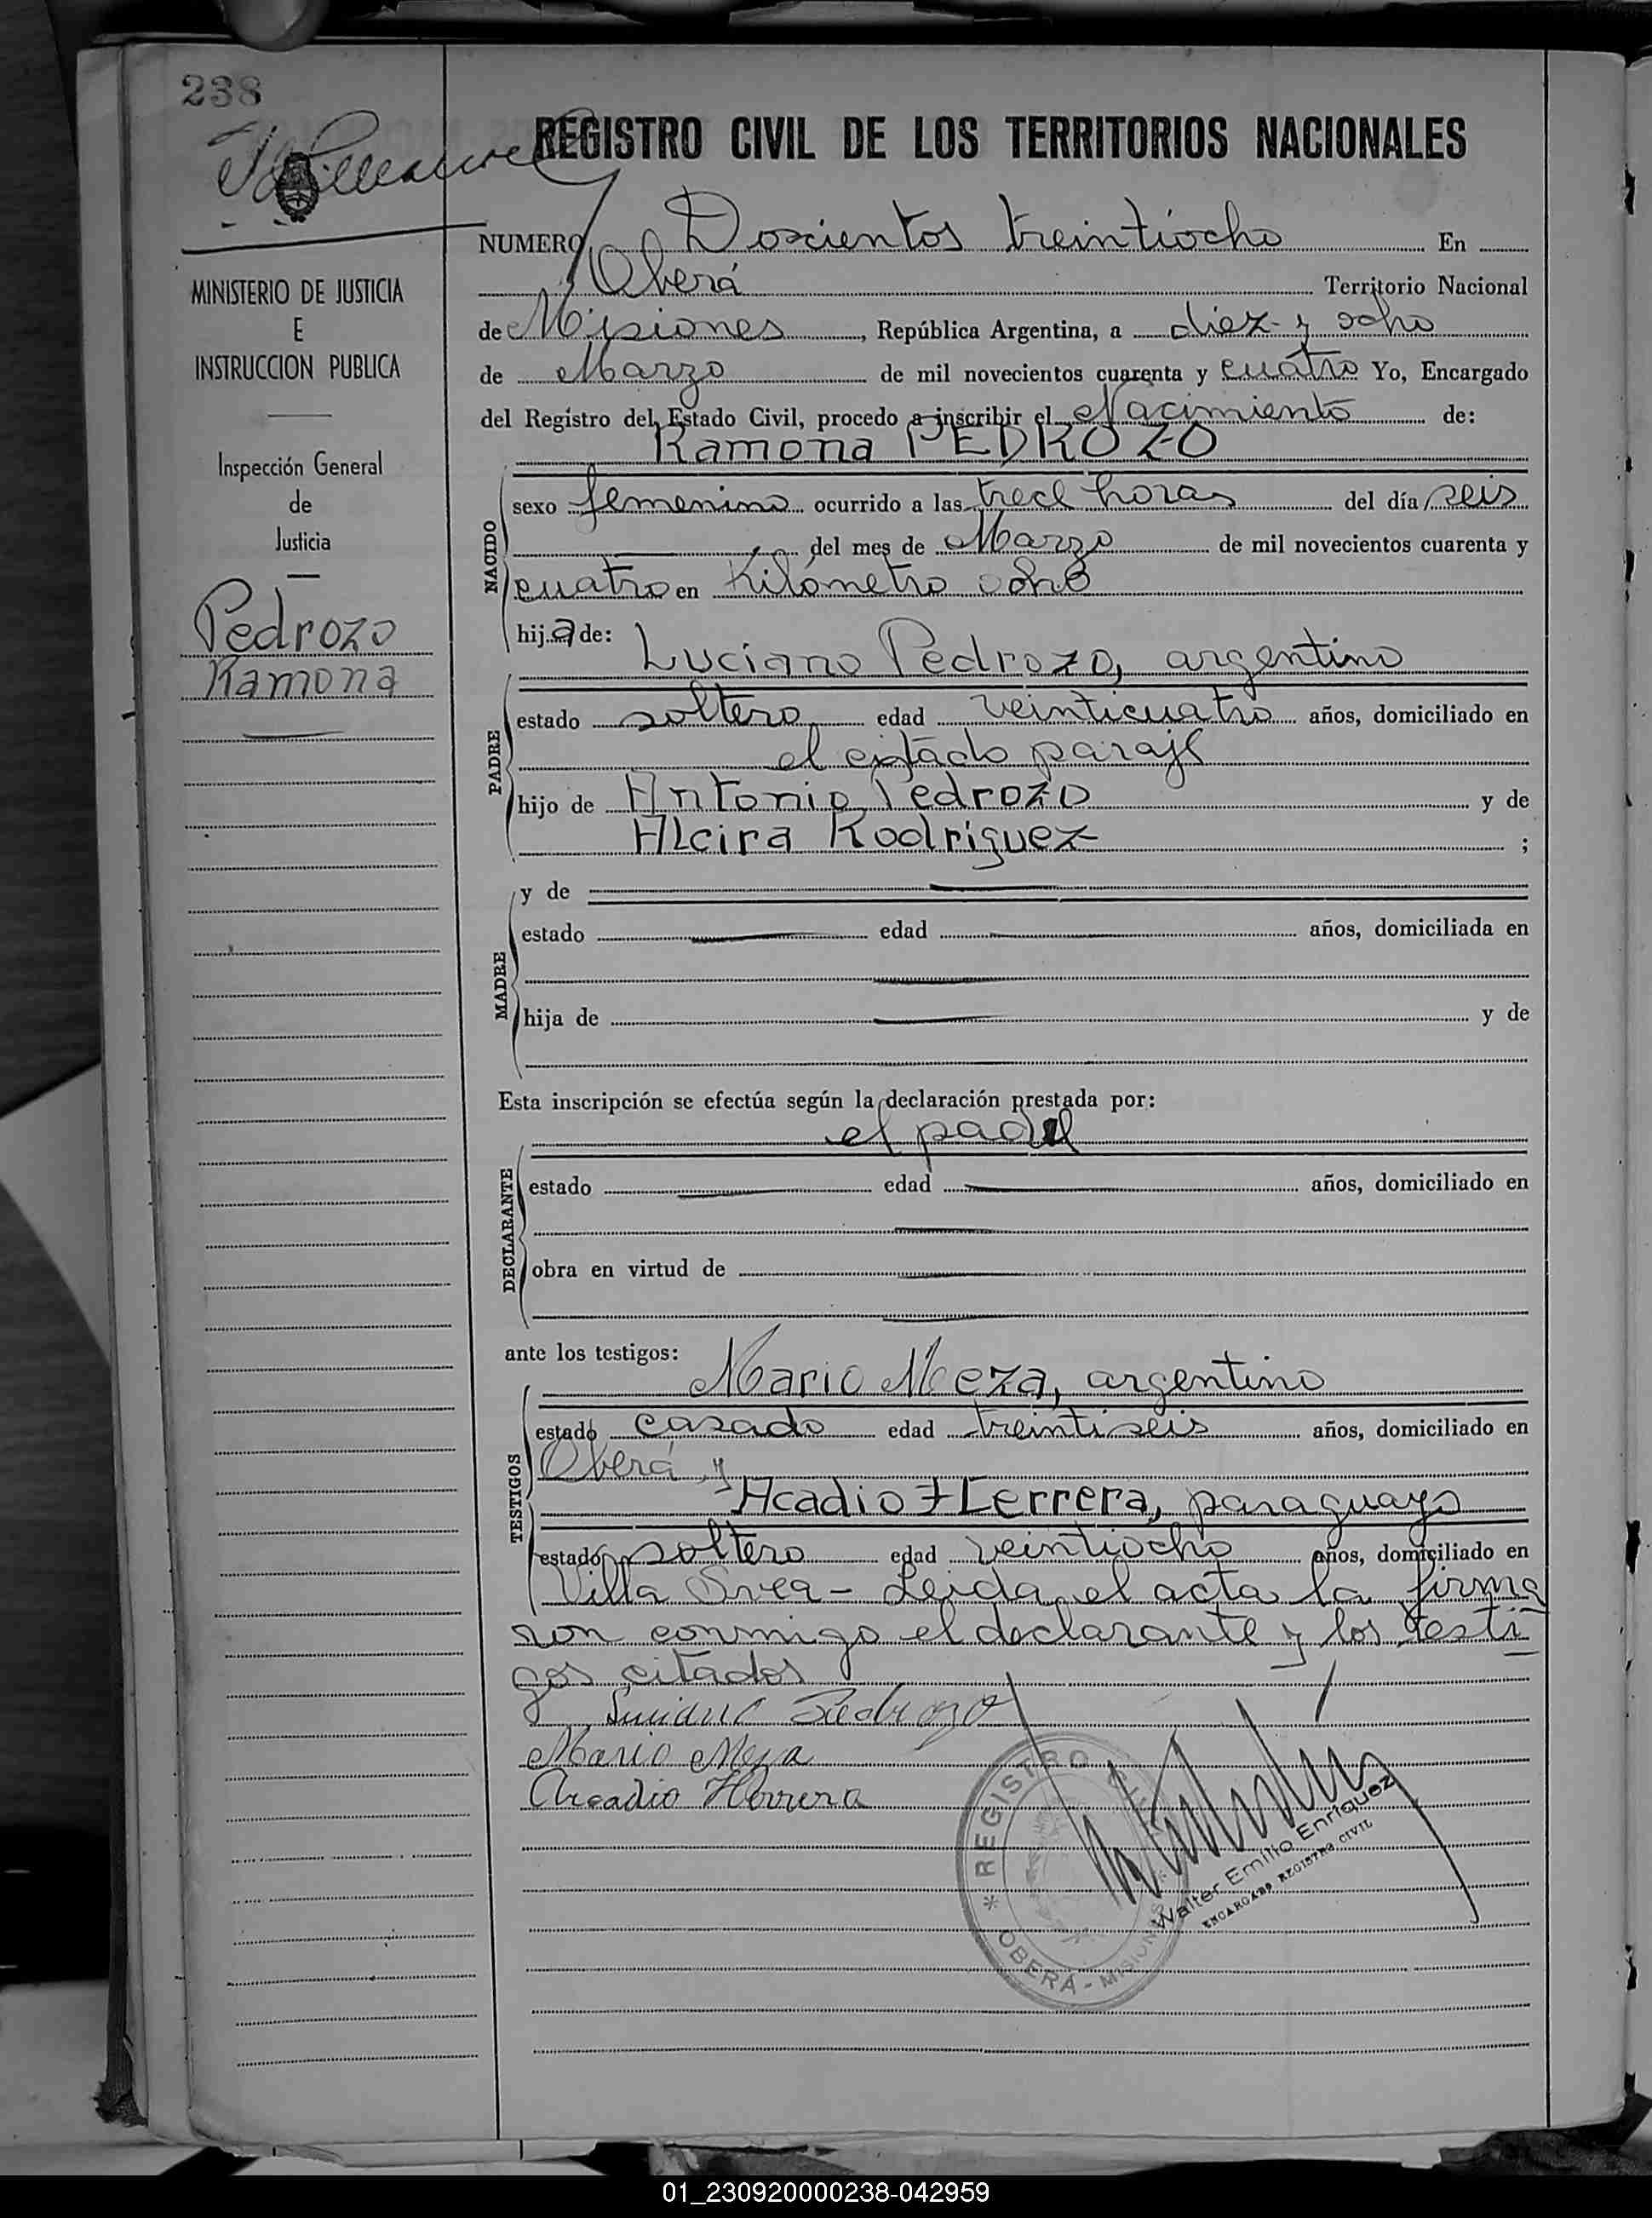 238
REGISTRO CIVIL DE LOS TERRITORIOS NACIONALES
NUMERO Doscientos treintiocho En
Oberá Territorio Nacional
de Misiones, República Argentina, a diez y ocho
de Marzo de mil novecientos cuarenta y cuatro Yo, Encargado
del Registro del Estado Civil, procedo a inscribir el Nacimiento de:
Ramona PEDROZO
MINISTERIO DE JUSTICIA
E
INSTRUCCION PUBLICA
Inspección General
de
Justicia
Pedrozo
Ramona
NACIDO
sexo femenino ocurrido a las trece horas del día seis
del mes de Marzo de mil novecientos cuarenta y
cuatro en Kilómetro ocho
hija de:
Luciano Pedrozo, argentino
PADRE
estado soltero edad veinticuatro años, domiciliado en
el citado paraje
hijo de Antonio Pedrozo y de
Alcira Rodríguez ;
MADRE
y de
estado edad años, domiciliada en
hija de y de
Esta inscripción se efectúa según la declaración prestada por:
el padre
DECLARANTE
estado edad años, domiciliado en
obra en virtud de
ante los testigos:
Mario Meza, argentino
TESTIGOS
estado casado edad treintiseis años, domiciliado en
Oberá y
Acadio Herrera, paraguayo
estado soltero edad veintiocho años, domiciliado en
Villa Svea - Leida el acta la firma
ron conmigo el declarante y los testi
gos citados
Luciano Pedrozo
Mario Meza
Arcadio Herrera
* REGISTRO
OBERÁ - MISIONES
Walter Emilio Enriquez
ENCARGADO REGISTRO CIVIL
01_230920000238-042959